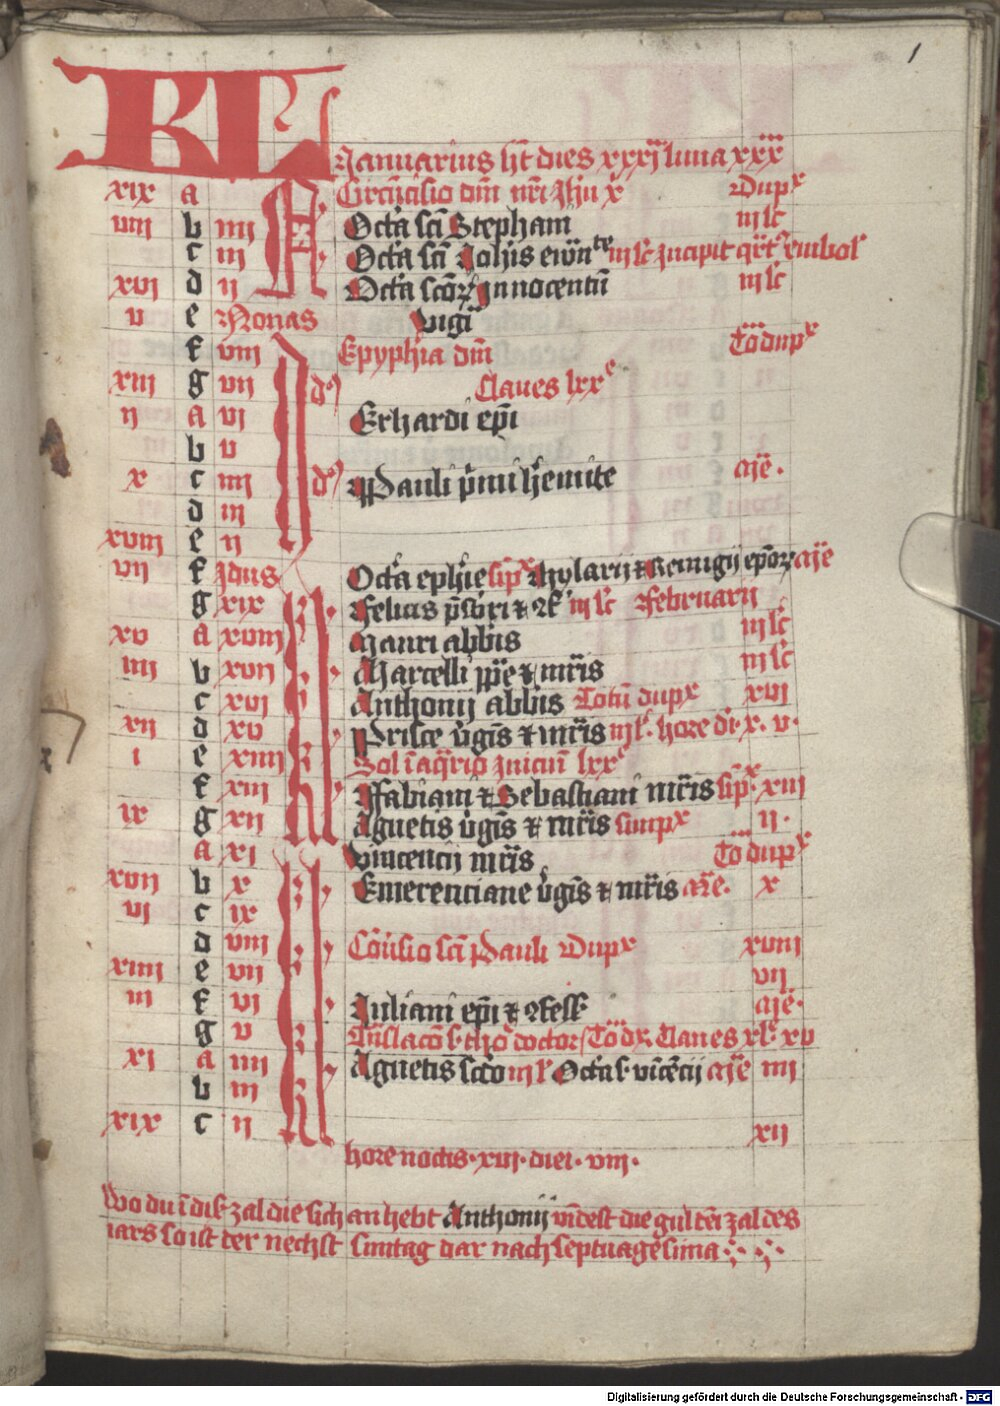 1
KL Januarius ht dies xxxj luna xxx
xix a Circūcisio dm̄ nr̄i Jhu x Dupx
viii b iiii Octa sc̄i Stephani iij lc
c iii Octa sc̄i Johis ewn̄te iij lc Incipit embol
xvi d ii Octa sco4 Innocentū iij lc
v e Nonas Vigi
f viii Epyphīa dm̄ Totū dupx
xiii g vii d Claues lxx
ii a vi Erhardi ep̄i
b v
x c iiii d Pauli p̄mi h̄emite
d iii
xviii e ii
vii f Idus Octa ephīe sīpx Hylarij et Remigij
g xix Felicis et iij lc Februarij
xv a xviii Mauri abbis iij lc
iiii b xvii Marcelli pp̄e et mr̄is iij lc
c xvi Anthonij abbis Totū dupx xvi
xii d xv Prisce v̄gīs et mr̄is iij l. hore di. x. v.
i e xiiii Sol ī aq̄rio
f xiii Fabiani et Sebastiani mr̄is sīpx xiii
ix g xii Agnetis v̄gīs et mr̄is simpx ii.
a xi Vincencij mr̄is Totū dupx
xvii b x Emerenciane v̄gīs et mr̄is x
vi c ix
d viii Cōūsio sc̄i Pauli Dupx xviii
xiiii e vii vii
iii f vi Juliani ep̄i et
g v doctor Claues xl xv
xi a iiii Agnetis scdo iij l Octa s. vīcēcij iiii
b iii
xix c ii xii
hore noctis. xvi. diei. viii.
Wo du ī dis zal die sich anhebt Anthonij vīdest die guldēi zal des
iars so ist der nechst suntag dar nach septuagesima
Digitalisierung gefördert durch die Deutsche Forschungsgemeinschaft - DFG